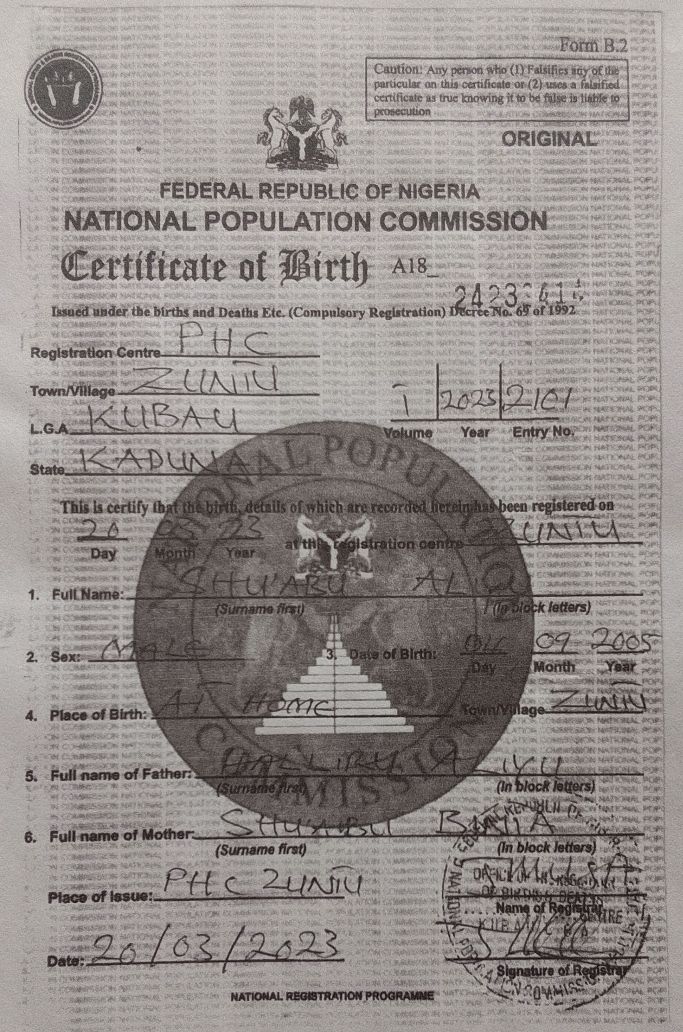 Form B.2
Caution: Any person who (1) Falsifies any of the
particular on this certificate or (2) uses a falsified
certificate as true knowing it to be false is liable to
prosecution
ORIGINAL
FEDERAL REPUBLIC OF NIGERIA
NATIONAL POPULATION COMMISSION
Certificate of Birth A18_
Issued under the births and Deaths Etc. (Compulsory Registration) Decree No. 69 of 1992
Registration Centre PHC
Town/Village ZUNTU
L.G.A KUBAU
1 2023 2101
Volume Year Entry No.
State KADUNA
This is certify that the birth, details of which are recorded herein has been registered on
20 23 at this registration centre ZUNTU
Day Month Year
1. Full Name: SHU'ABU
(Surname first) (In block letters)
2. Sex: MALE 3. Date of Birth: 04 09 2005
Day Month Year
4. Place of Birth: AT HOME Town/Village ZUNTU
5. Full name of Father: HALLIRU ALIYU
(Surname first) (In block letters)
6. Full name of Mother: SHU'AIBU
(Surname first) (In block letters)
Place of Issue: PHC ZUNTU
Name of Registrar
Date: 20/03/2023
Signature of Registrar
NATIONAL REGISTRATION PROGRAMME
NATIONAL POPULATION COMMISSION